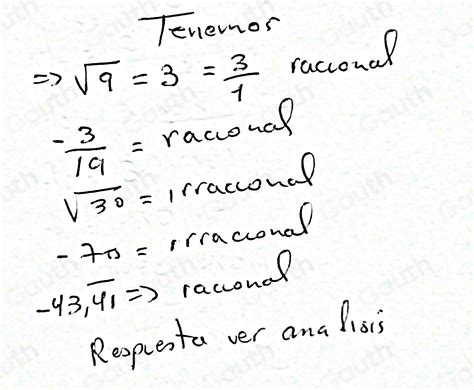 Tenemos
=> √9 = 3 = 3/1 racional
-3/19 = racional
√30 = irracional
-7π = irracional
-43,4̅1̅ => racional
Respuesta ver analisis